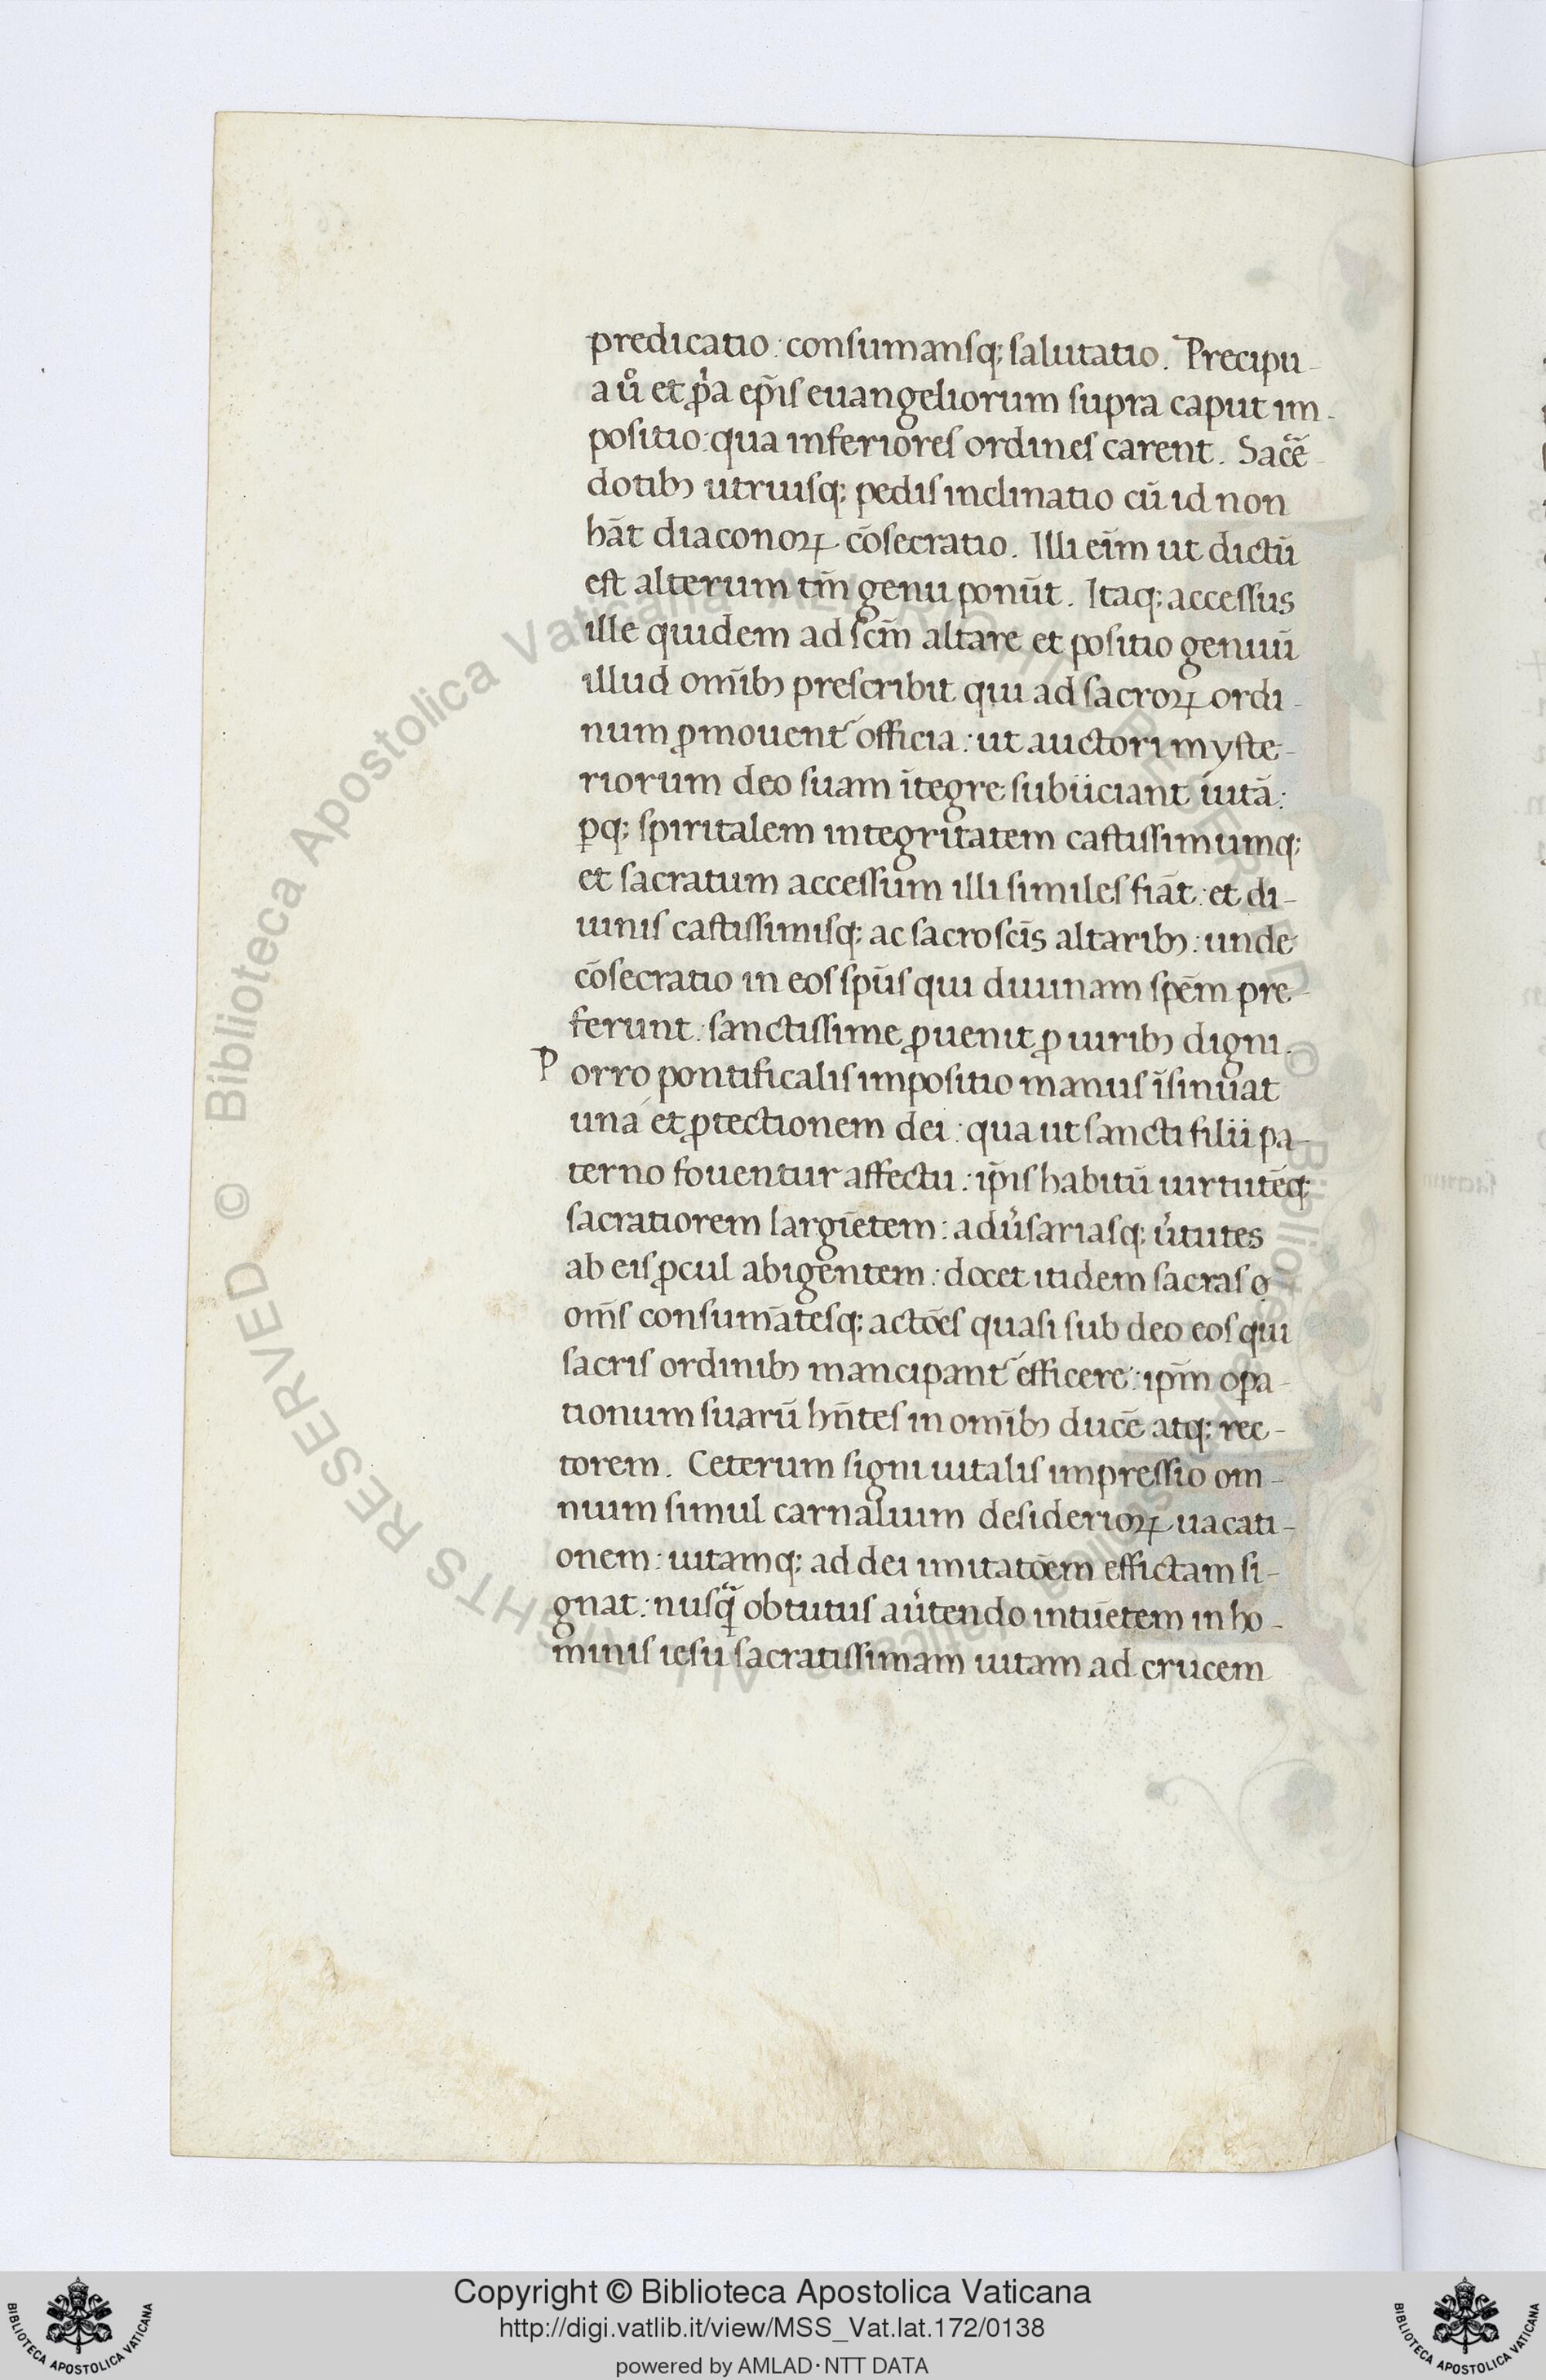 predicatio: consumansq; salutatio. Precipu-
a u̾o et p̾a ep̄is euangeliorum supra caput im-
positio: qua inferiores ordines carent. Sac̾e-
dotibꝫ utruisq; pedis inclinatio cū id non
hāt diaconoꝝ cōsecratio. Illi eīm ut dictū
est alterum tm̄ genu ponūt. Itaq; accessus
ille quidem ad scm̄ altare et positio genuū
illud omībꝫ prescribit qui ad sacroꝝ ordi-
num ꝓmouent᷑ officia: ut auctori myste-
riorum deo suam ītegre subiiciant uitā:
ꝑq; spiritalem integritatem castissimumq;
et sacratum accessum illi similes fiāt: et di-
uinis castissimisq; ac sacroscīs altaribꝫ: unde
cōsecratio in eos spūs qui diuinam spēm pre-
ferunt: sanctissime ꝓuenit ꝓ uiribꝫ digni.
Porro pontificalis impositio manus īsinuat
una et ꝓtectionem dei: qua ut sancti filii pa-
terno fouentur affectu: ip̄is habitū uirtutēq;
sacratiorem largiētem: adu̾sariasq; u̾tutes
ab eis ꝓcul abigentem: docet itidem sacras o
om̄s consumātesq; actōes quasi sub deo eos qui
sacris ordinibꝫ mancipant᷑ efficere: ip̄m oꝑa-
tionum suarū hn̄tes in omībꝫ ducē atq; rec-
torem. Ceterum signi uitalis impressio om-
nium simul carnalium desiderioꝝ uacati-
onem: uitamq; ad dei imitatōem effictam si-
gnat: nusꝙ̃ obtutus au̾tendo intuētem in ho-
minis iesu sacratissimam uitam ad crucem
© Biblioteca Apostolica Vaticana ALL RIGHTS RESERVED
Copyright © Biblioteca Apostolica Vaticana
http://digi.vatlib.it/view/MSS_Vat.lat.172/0138
powered by AMLAD·NTT DATA
BIBLIOTECA APOSTOLICA VATICANA
BIBLIOTECA APOSTOLICA VATICANA